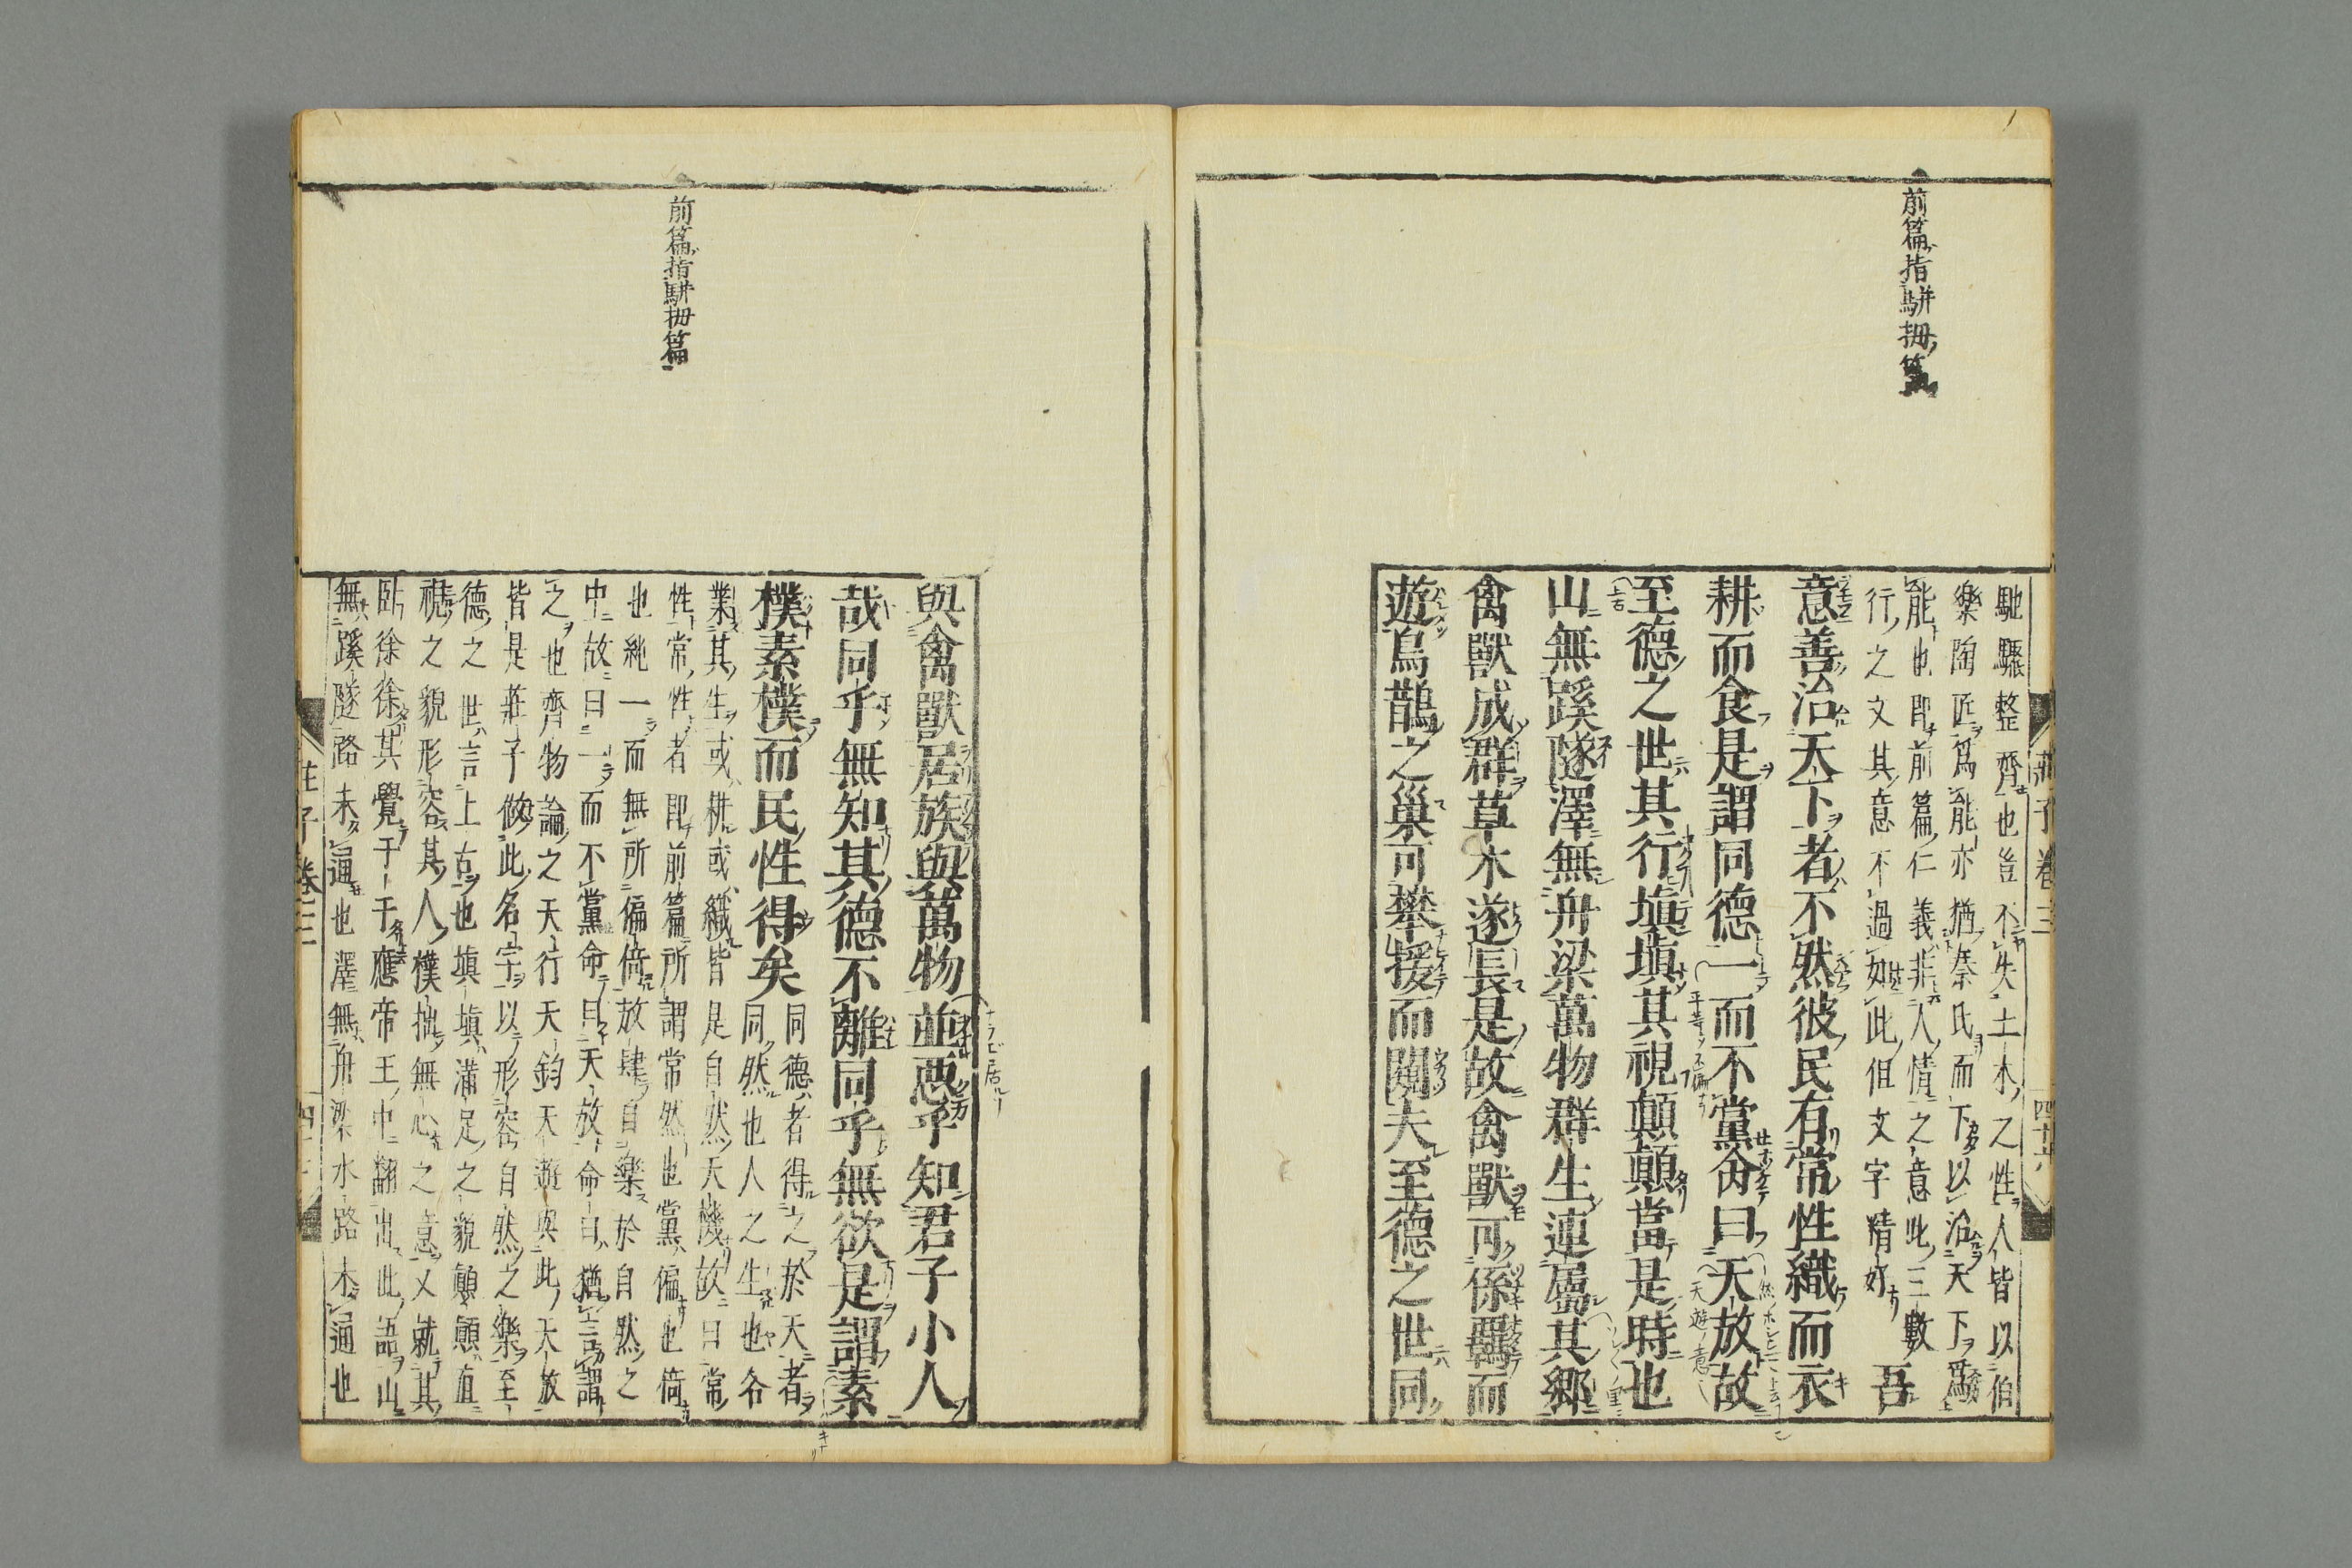 前篇指駢拇篇
馳驟整齊也豈不失土木之性人皆以伯
樂陶匠爲能亦猶泰氏而下以治天下爲
能也即前篇仁義非人情之意此三數
行之文其意不過如此但文字精好 吾
意善治天下者不然彼民有常性織而衣
耕而食是謂同德一而不黨命曰天放故
至德之世其行塡塡其視顚顚當是時也
山無蹊隧澤無舟梁萬物群生連屬其鄉
禽獸成群草木遂長是故禽獸可係羈而
遊烏鵲之巢可攀援而闚夫至德之世同
莊子卷三
前篇指駢拇篇
與禽獸居族與萬物並惡乎知君子小人
哉同乎無知其德不離同乎無欲是謂素
樸素樸而民性得矣 同德者得之於天者
同然也人之生也各
業其生或耕或織皆是自然天機故曰常
性常性者即前篇所謂常然也黨偏也倚
也純一而無所偏倚放肆自樂於自然之
中故曰一而不黨命曰天放命曰猶言謂
之也齊物論之天行天鈞天遊與此天放
皆是莊子做此名字以形容自然之樂至
德之世言上古也塡塡滿足之貌顚顚直
視之貌形容其人樸拙無心之意又就其
臥徐徐其覺于于應帝王中翻出此語山
無蹊隧路未通也澤無舟梁水路未通也
莊子卷三